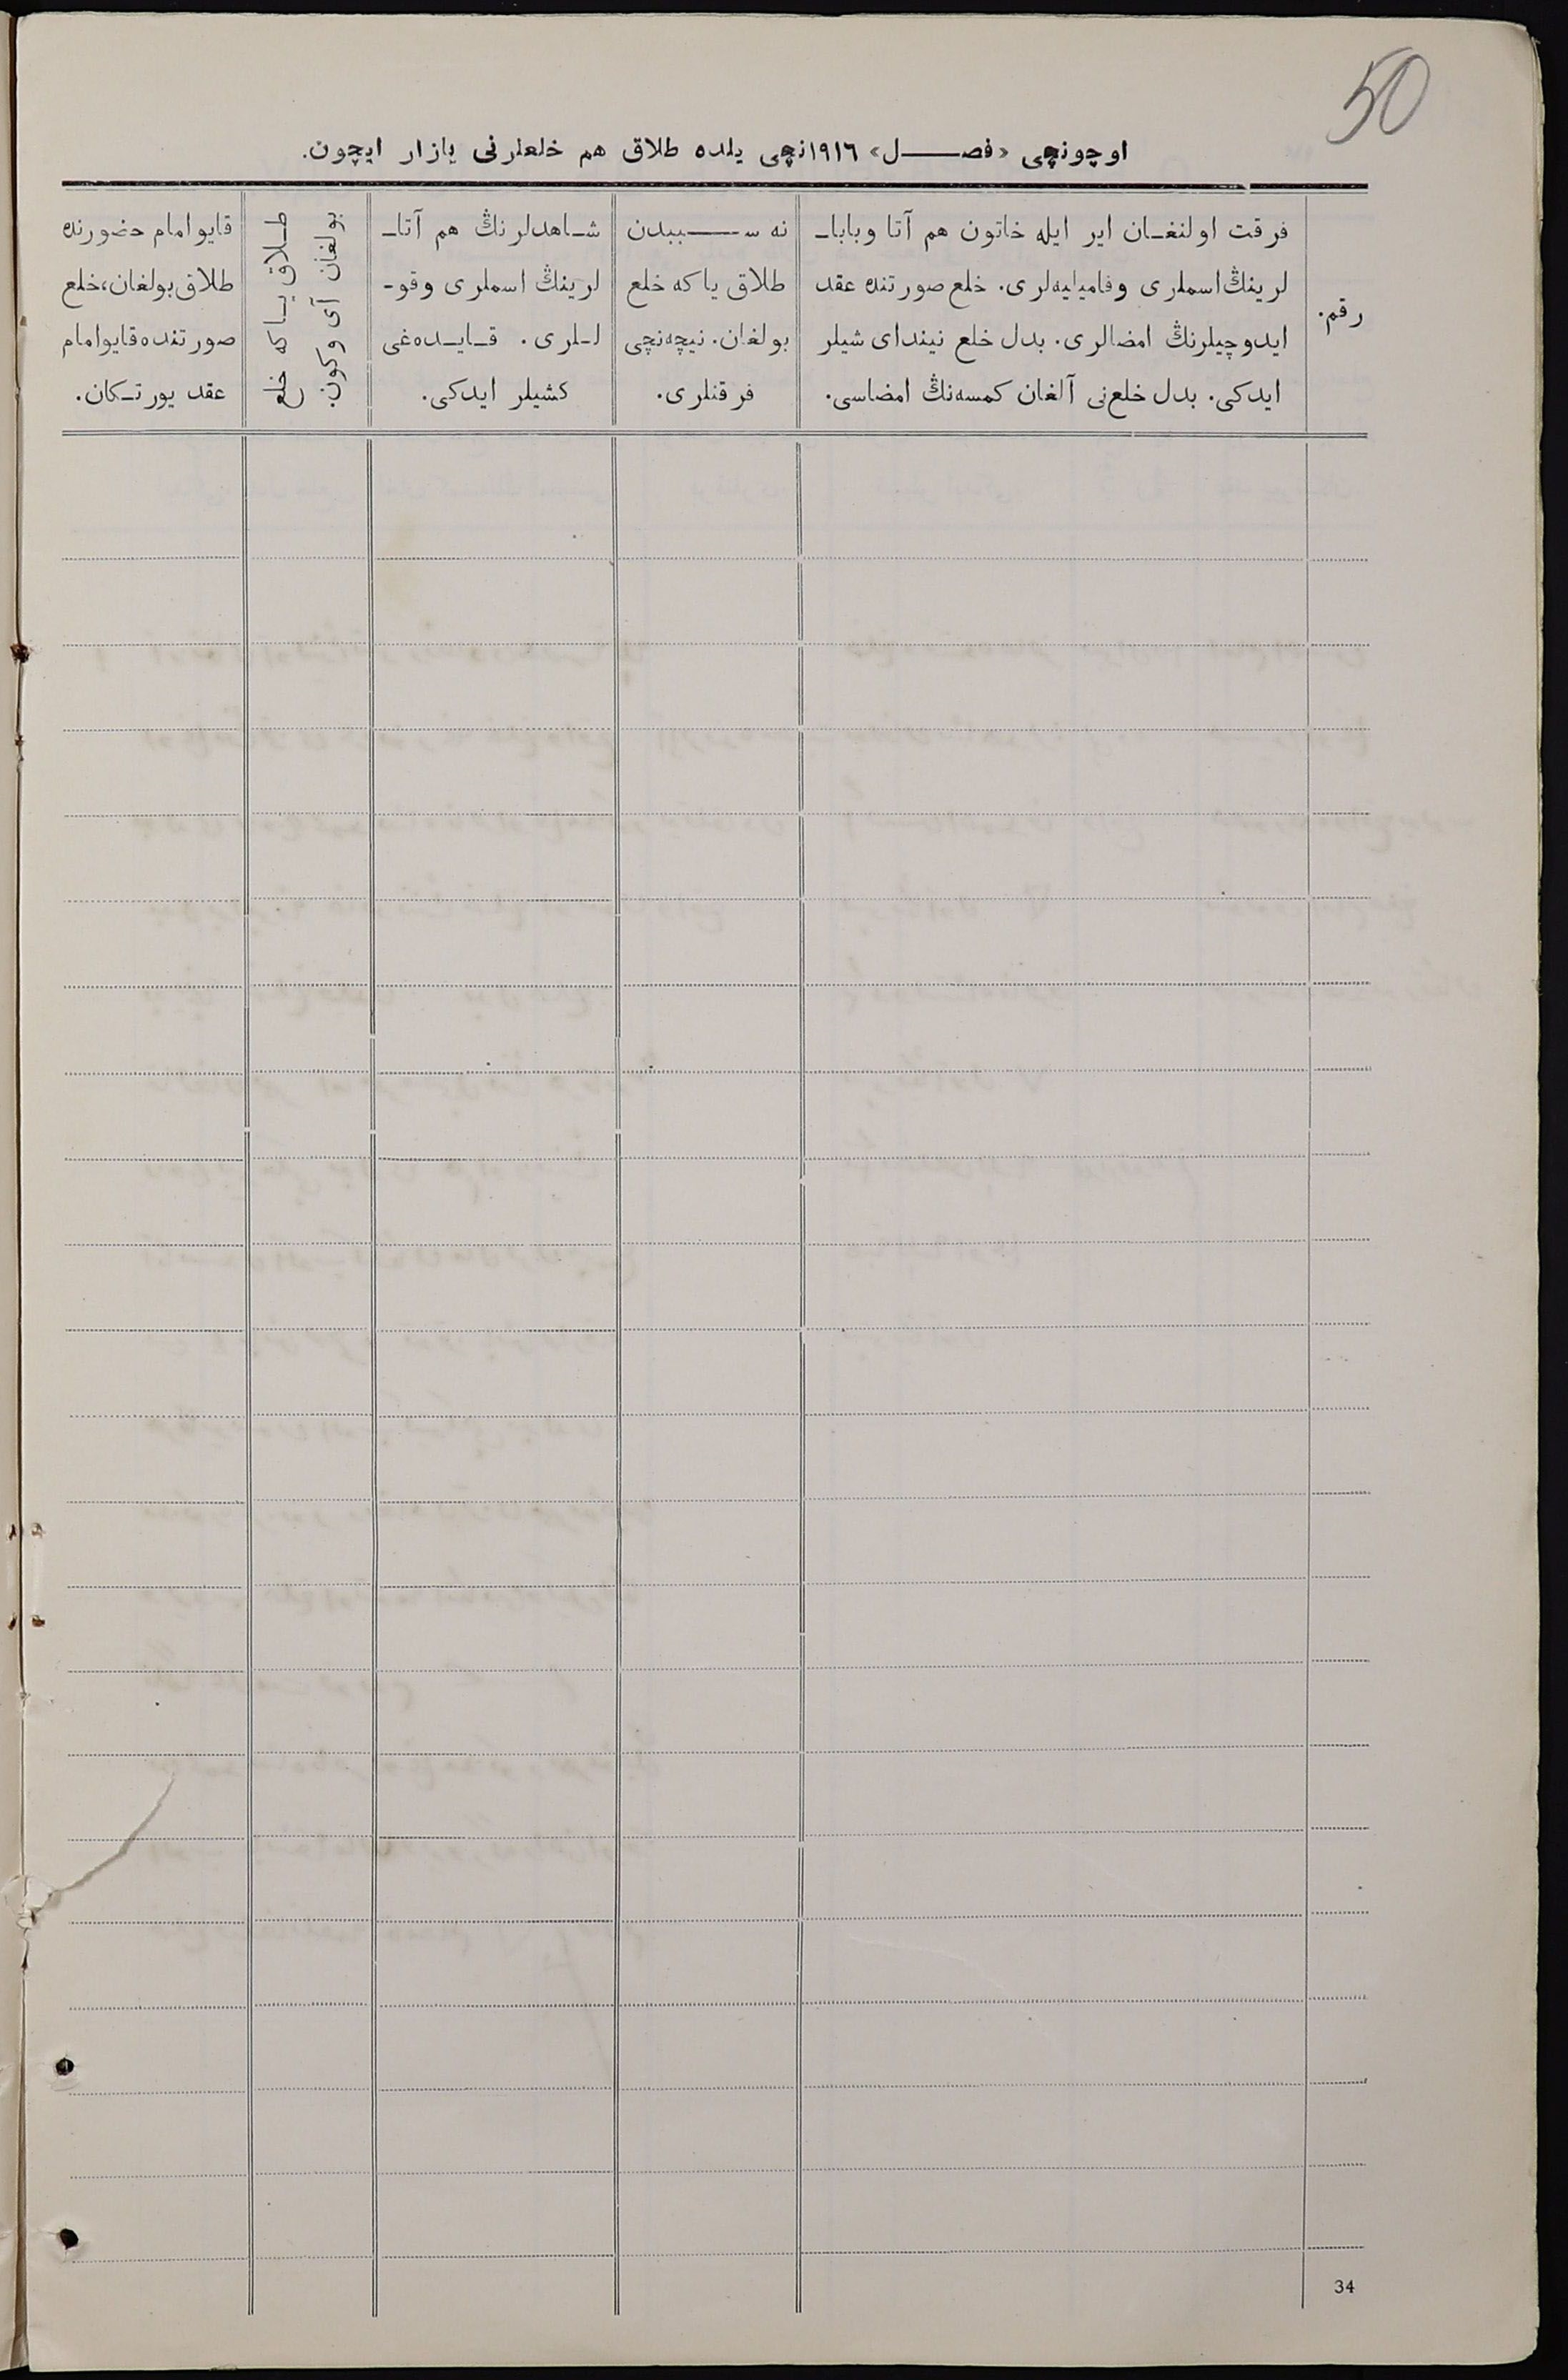 50
اوچونچی «فصل» ۱۹۱٦نچی یلده طلاق هم خلعلرنی یازار ایچون.
رقم.
فرقت اولنغان ایر ایله خاتون هم آتا وبابا-
لرینڭ اسملری وفامیلیه‌لری. خلع صورتنده عقد
ایدوچیلرنڭ امضالری. بدل خلع نیندای شیلر
ایدکی. بدل خلع‌نی آلغان کمسه‌نڭ امضاسی.
نه سببدن
طلاق یاکه خلع
بولغان. نیچه‌نچی
فرقتلری.
شاهدلرنڭ هم آتا-
لرینڭ اسملری وقو-
للری. قایده‌غی
کشیلر ایدکی.
طلاق یاکه خلع
بولغان آی وکون.
قایو امام حضورنده
طلاق بولغان، خلع
صورتنده قایو امام
عقد یورتکان.
34